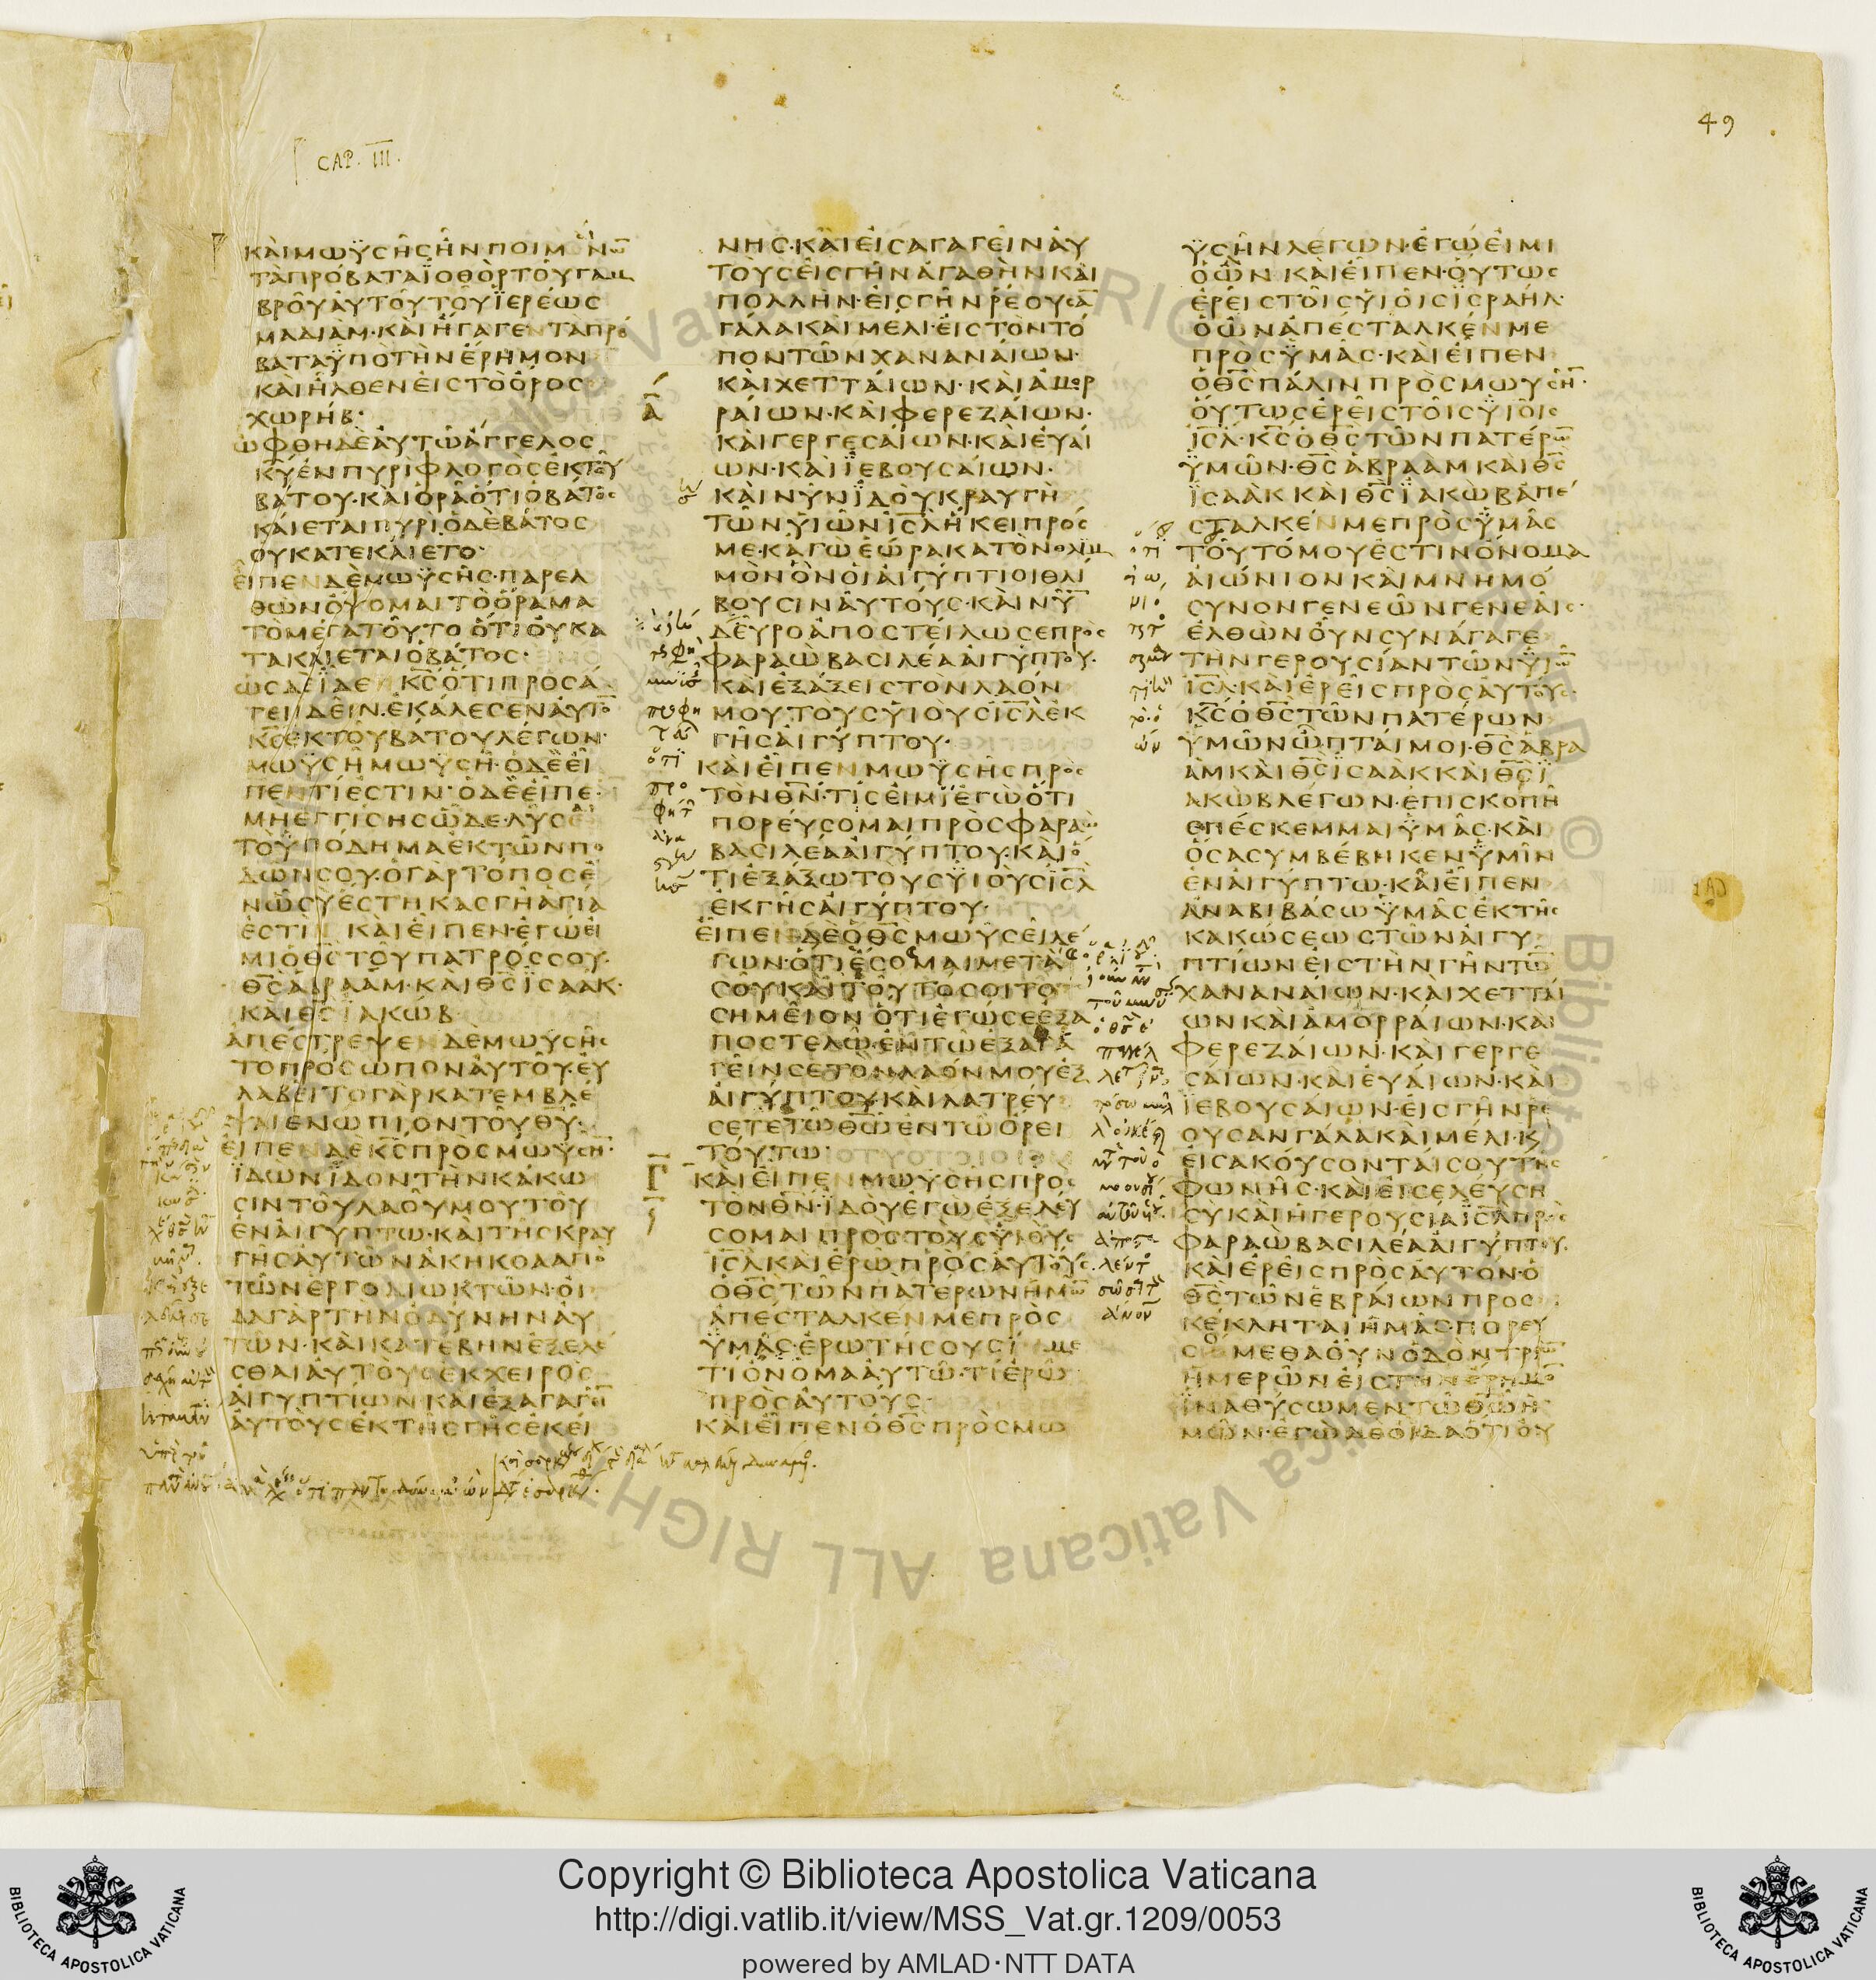 49
CAP. III.
ΚΑΙΜΩΫСΗСΗΝΠΟΙΜΑΙΝΩ̅
ΤΑΠΡΟΒΑΤΑΪΟΘΟΡΤΟΥΓΑΜ
ΒΡΟΥΑΥΤΟΥΤΟΥΪΕΡΕΩС
ΜΑΔΙΑΜ·ΚΑΙΗΓΑΓΕΝΤΑΠΡΟ
ΒΑΤΑΫΠΟΤΗΝΕΡΗΜΟΝ
ΚΑΙΗΛΘΕΝΕΙСΤΟΟΡΟС
ΧΩΡΗΒ·
ΩΦΘΗΔΕΑΥΤΩΑΓΓΕΛΟС
Κ̅Υ̅ΕΝΠΥΡΙΦΛΟΓΟСΕΚΤΟΥ
ΒΑΤΟΥ·ΚΑΙΟΡΑΟΤΙΟΒΑΤΟС
ΚΑΙΕΤΑΙΠΥΡΙΟΔΕΒΑΤΟС
ΟΥΚΑΤΕΚΑΙΕΤΟ·
ΕΙΠΕΝΔΕΜΩΫСΗС·ΠΑΡΕΛ
ΘΩΝΟΨΟΜΑΙΤΟΟΡΑΜΑ
ΤΟΜΕΓΑΤΟΥΤΟΟΤΙΟΥΚΑ
ΤΑΚΑΙΕΤΑΙΟΒΑΤΟС·
ΩСΔΕΪΔΕΝΚ̅С̅ΟΤΙΠΡΟСΑ
ΓΕΙΔΕΙΝ·ΕΚΑΛΕСΕΝΑΥΤΟ̅
Κ̅С̅ΕΚΤΟΥΒΑΤΟΥΛΕΓΩΝ·
ΜΩΫСΗΜΩΫСΗ·ΟΔΕΕΙ
ΠΕΝΤΙΕСΤΙΝ·ΟΔΕΕΙΠΕ·
ΜΗΕΓΓΙСΗСΩΔΕ·ΛΥСΕ
ΤΟΫΠΟΔΗΜΑΕΚΤΩΝΠΟ
ΔΩΝСΟΥ·ΟΓΑΡΤΟΠΟСΕ
ΝΩСΥΕСΤΗΚΑСΓΗΑΓΙΑ
ΕСΤΙΝ ΚΑΙΕΙΠΕΝ·ΕΓΩΕΙ
ΜΙΟΘ̅С̅ΤΟΥΠΑΤΡΟССΟΥ·
Θ̅С̅ΑΒΡΑΑΜ·ΚΑΙΘ̅С̅ΪСΑΑΚ·
ΚΑΙΘ̅С̅ΪΑΚΩΒ
ΑΠΕСΤΡΕΨΕΝΔΕΜΩΥСΗС
ΤΟΠΡΟСΩΠΟΝΑΥΤΟΥ·ΕΥ
ΛΑΒΕΙΤΟΓΑΡΚΑΤΕΜΒΛΕ
ΨΑΙΕΝΩΠΙΟΝΤΟΥΘ̅Υ̅·
ΕΙΠΕΝΔΕΚ̅С̅ΠΡΟСΜΩΥСΗ̅·
ΪΔΩΝΪΔΟΝΤΗΝΚΑΚΩ
СΙΝΤΟΥΛΑΟΥΜΟΥΤΟΥ
ΕΝΑΙΓΥΠΤΩ·ΚΑΙΤΗСΚΡΑΥ
ΓΗСΑΥΤΩΝΑΚΗΚΟΑΑΠΟ
ΤΩΝΕΡΓΟΔΙΩΚΤΩΝ·ΟΙ
ΔΑΓΑΡΤΗΝΟΔΥΝΗΝΑΥ
ΤΩΝ·ΚΑΙΚΑΤΕΒΗΝΕΞΕΛΕ
СΘΑΙΑΥΤΟΥСΕΚΧΕΙΡΟС
ΑΙΓΥΠΤΙΩΝΚΑΙΕΞΑΓΑΓΕΙ̅
ΑΥΤΟΥСΕΚΤΗСΓΗСΕΚΕΙ
ΝΗС·ΚΑΙΕΙСΑΓΑΓΕΙΝΑΥ
ΤΟΥСΕΙСΓΗΝΑΓΑΘΗΝΚΑΙ
ΠΟΛΛΗΝ·ΕΙСΓΗΝΡΕΟΥСΑ̅
ΓΑΛΑΚΑΙΜΕΛΙ·ΕΙСΤΟΝΤΟ
ΠΟΝΤΩΝΧΑΝΑΝΑΙΩΝ·
ΚΑΙΧΕΤΤΑΙΩΝ·ΚΑΙΑΜΟΡ
ΡΑΙΩΝ·ΚΑΙΦΕΡΕΖΑΙΩΝ·
ΚΑΙΓΕΡΓΕСΑΙΩΝ·ΚΑΙΕΥΑΙ
ΩΝ·ΚΑΙΪΕΒΟΥСΑΙΩΝ·
ΚΑΙΝΥΝΪΔΟΥΚΡΑΥΓΗ
ΤΩΝΥΙΩΝΙ̅С̅Λ̅ΗΚΕΙΠΡΟС
ΜΕ·ΚΑΓΩΕΩΡΑΚΑΤΟΝΘΛΙΜ
ΜΟΝΟΝΟΙΑΙΓΥΠΤΙΟΙΘΛΙ
ΒΟΥСΙΝΑΥΤΟΥС·ΚΑΙΝΥ̅
ΔΕΥΡΟΑΠΟСΤΕΙΛΩСΕΠΡΟС
ΦΑΡΑΩΒΑСΙΛΕΑΑΙΓΥΠΤΟΥ·
ΚΑΙΕΞΑΞΕΙСΤΟΝΛΑΟΝ
ΜΟΥΤΟΥСΥΙΟΥСΙ̅С̅Λ̅ΕΚ
ΓΗСΑΙΓΥΠΤΟΥ·
ΚΑΙΕΙΠΕΝΜΩΫСΗСΠΡΟС
ΤΟΝΘ̅Ν̅·ΤΙСΕΙΜΙΕΓΩΟΤΙ
ΠΟΡΕΥСΟΜΑΙΠΡΟСΦΑΡΑΩ
ΒΑСΙΛΕΑΑΙΓΥΠΤΟΥ·ΚΑΙΟ
ΤΙΕΞΑΞΩΤΟΥСΫΙΟΥСΙ̅С̅Λ̅
ΕΚΓΗСΑΙΓΥΠΤΟΥ·
ΕΙΠΕΝΔΕΟΘ̅С̅ΜΩΥСΕΙΛΕ
ΓΩΝ·ΟΤΙΕСΟΜΑΙΜΕΤΑ
СΟΥΚΑΙΤΟΥΤΟСΟΙΤΟ
СΗΜΕΙΟΝΟΤΙΕΓΩСΕΕΞΑ
ΠΟСΤΕΛΩ·ΕΝΤΩΕΞΑΓΑ
ΓΕΙΝСΕΤΟΝΛΑΟΝΜΟΥΕΞ
ΑΙΓΥΠΤΟΥΚΑΙΛΑΤΡΕΥ
СΕΤΕΤΩΘ̅Ω̅ΕΝΤΩΟΡΕΙ
ΤΟΥΤΩ·
ΚΑΙΕΙΠΕΝΜΩΥСΗСΠΡΟС
ΤΟΝΘ̅Ν̅·ΪΔΟΥΕΓΩΕΞΕΛΕΥ
СΟΜΑΙΠΡΟСΤΟΥСΥΙΟΥС
Ι̅С̅Λ̅ΚΑΙΕΡΩΠΡΟСΑΥΤΟΥС·
ΟΘ̅С̅ΤΩΝΠΑΤΕΡΩΝΗΜΩ̅
ΑΠΕСΤΑΛΚΕΝΜΕΠΡΟС
ΫΜΑС·ΕΡΩΤΗСΟΥСΙΜΕ
ΤΙΟΝΟΜΑΑΥΤΩ·ΤΙΕΡΩ
ΠΡΟСΑΥΤΟΥС·
ΚΑΙΕΙΠΕΝΟΘ̅С̅ΠΡΟСΜΩ
ΫСΗΝΛΕΓΩΝ·ΕΓΩΕΙΜΙ
ΟΩΝ·ΚΑΙΕΙΠΕΝ·ΟΥΤΩС
ΕΡΕΙСΤΟΙСΥΙΟΙСΙСΡΑΗΛ·
ΟΩΝΑΠΕСΤΑΛΚΕΝΜΕ
ΠΡΟСΫΜΑС·ΚΑΙΕΙΠΕΝ
ΟΘ̅С̅ΠΑΛΙΝΠΡΟСΜΩΥСΗ̅·
ΟΥΤΩСΕΡΕΙСΤΟΙСΫΙΟΙС
Ι̅С̅Λ̅·Κ̅С̅ΟΘ̅С̅ΤΩΝΠΑΤΕΡΩ̅
ΫΜΩΝ·Θ̅С̅ΑΒΡΑΑΜΚΑΙΘ̅С̅
ΪСΑΑΚΚΑΙΘ̅С̅ΪΑΚΩΒΑΠΕ
СΤΑΛΚΕΝΜΕΠΡΟСΫΜΑС
ΤΟΥΤΟΜΟΥΕСΤΙΝΟΝΟΜΑ
ΑΙΩΝΙΟΝΚΑΙΜΝΗΜΟ
СΥΝΟΝΓΕΝΕΩΝΓΕΝΕΑΙС·
ΕΛΘΩΝΟΥΝСΥΝΑΓΑΓΕ
ΤΗΝΓΕΡΟΥСΙΑΝΤΩΝΫΙΩ̅
Ι̅С̅Λ̅·ΚΑΙΕΡΕΙСΠΡΟСΑΥΤΟΥС·
Κ̅С̅ΟΘ̅С̅ΤΩΝΠΑΤΕΡΩΝ
ΫΜΩΝΩΠΤΑΙΜΟΙ·Θ̅С̅ΑΒΡΑ
ΑΜΚΑΙΘ̅С̅ΪСΑΑΚΚΑΙΘ̅С̅Ϊ
ΑΚΩΒΛΕΓΩΝ·ΕΠΙСΚΟΠΗ
ΕΠΕСΚΕΜΜΑΙΫΜΑС·ΚΑΙ
ΟСΑСΥΜΒΕΒΗΚΕΝΫΜΙΝ
ΕΝΑΙΓΥΠΤΩ·ΚΑΙΕΙΠΕΝ
ΑΝΑΒΙΒΑСΩΫΜΑСΕΚΤΗС
ΚΑΚΩСΕΩСΤΩΝΑΙΓΥ
ΠΤΙΩΝΕΙСΤΗΝΓΗΝΤΩ̅
ΧΑΝΑΝΑΙΩΝ·ΚΑΙΧΕΤΤΑΙ
ΩΝΚΑΙΑΜΟΡΡΑΙΩΝ·ΚΑΙ
ΦΕΡΕΖΑΙΩΝ·ΚΑΙΓΕΡΓΕ
СΑΙΩΝ·ΚΑΙΕΥΑΙΩΝ·ΚΑΙ
ΪΕΒΟΥСΑΙΩΝ·ΕΙСΓΗΝΡΕ
ΟΥСΑΝΓΑΛΑΚΑΙΜΕΛΙ·Κ
ΕΙСΑΚΟΥСΟΝΤΑΙСΟΥΤΗС
ΦΩΝΗС·ΚΑΙΕΙСΕΛΕΥСΗ
СΥΚΑΙΗΓΕΡΟΥСΙΑΙ̅С̅Λ̅ΠΡΟС
ΦΑΡΑΩΒΑСΙΛΕΑΑΙΓΥΠΤΟΥ·
ΚΑΙΕΡΕΙСΠΡΟСΑΥΤΟΝ·Ο
Θ̅С̅ΤΩΝΕΒΡΑΙΩΝΠΡΟС
ΚΕΚΛΗΤΑΙΗΜΑС·ΠΟΡΕΥ
СΟΜΕΘΑΟΥΝΟΔΟΝΤΡΙΩ̅
ΗΜΕΡΩΝΕΙСΤΗΝΕΡΗΜΟ̅
ΪΝΑΘΥСΩΜΕΝΤΩΘ̅Ω̅Η
ΜΩΝ·ΕΓΩΔΕΟΙΔΑΟΤΙΟΥ
Copyright © Biblioteca Apostolica Vaticana
http://digi.vatlib.it/view/MSS_Vat.gr.1209/0053
powered by AMLAD·NTT DATA
BIBLIOTECA APOSTOLICA VATICANA
BIBLIOTECA APOSTOLICA VATICANA